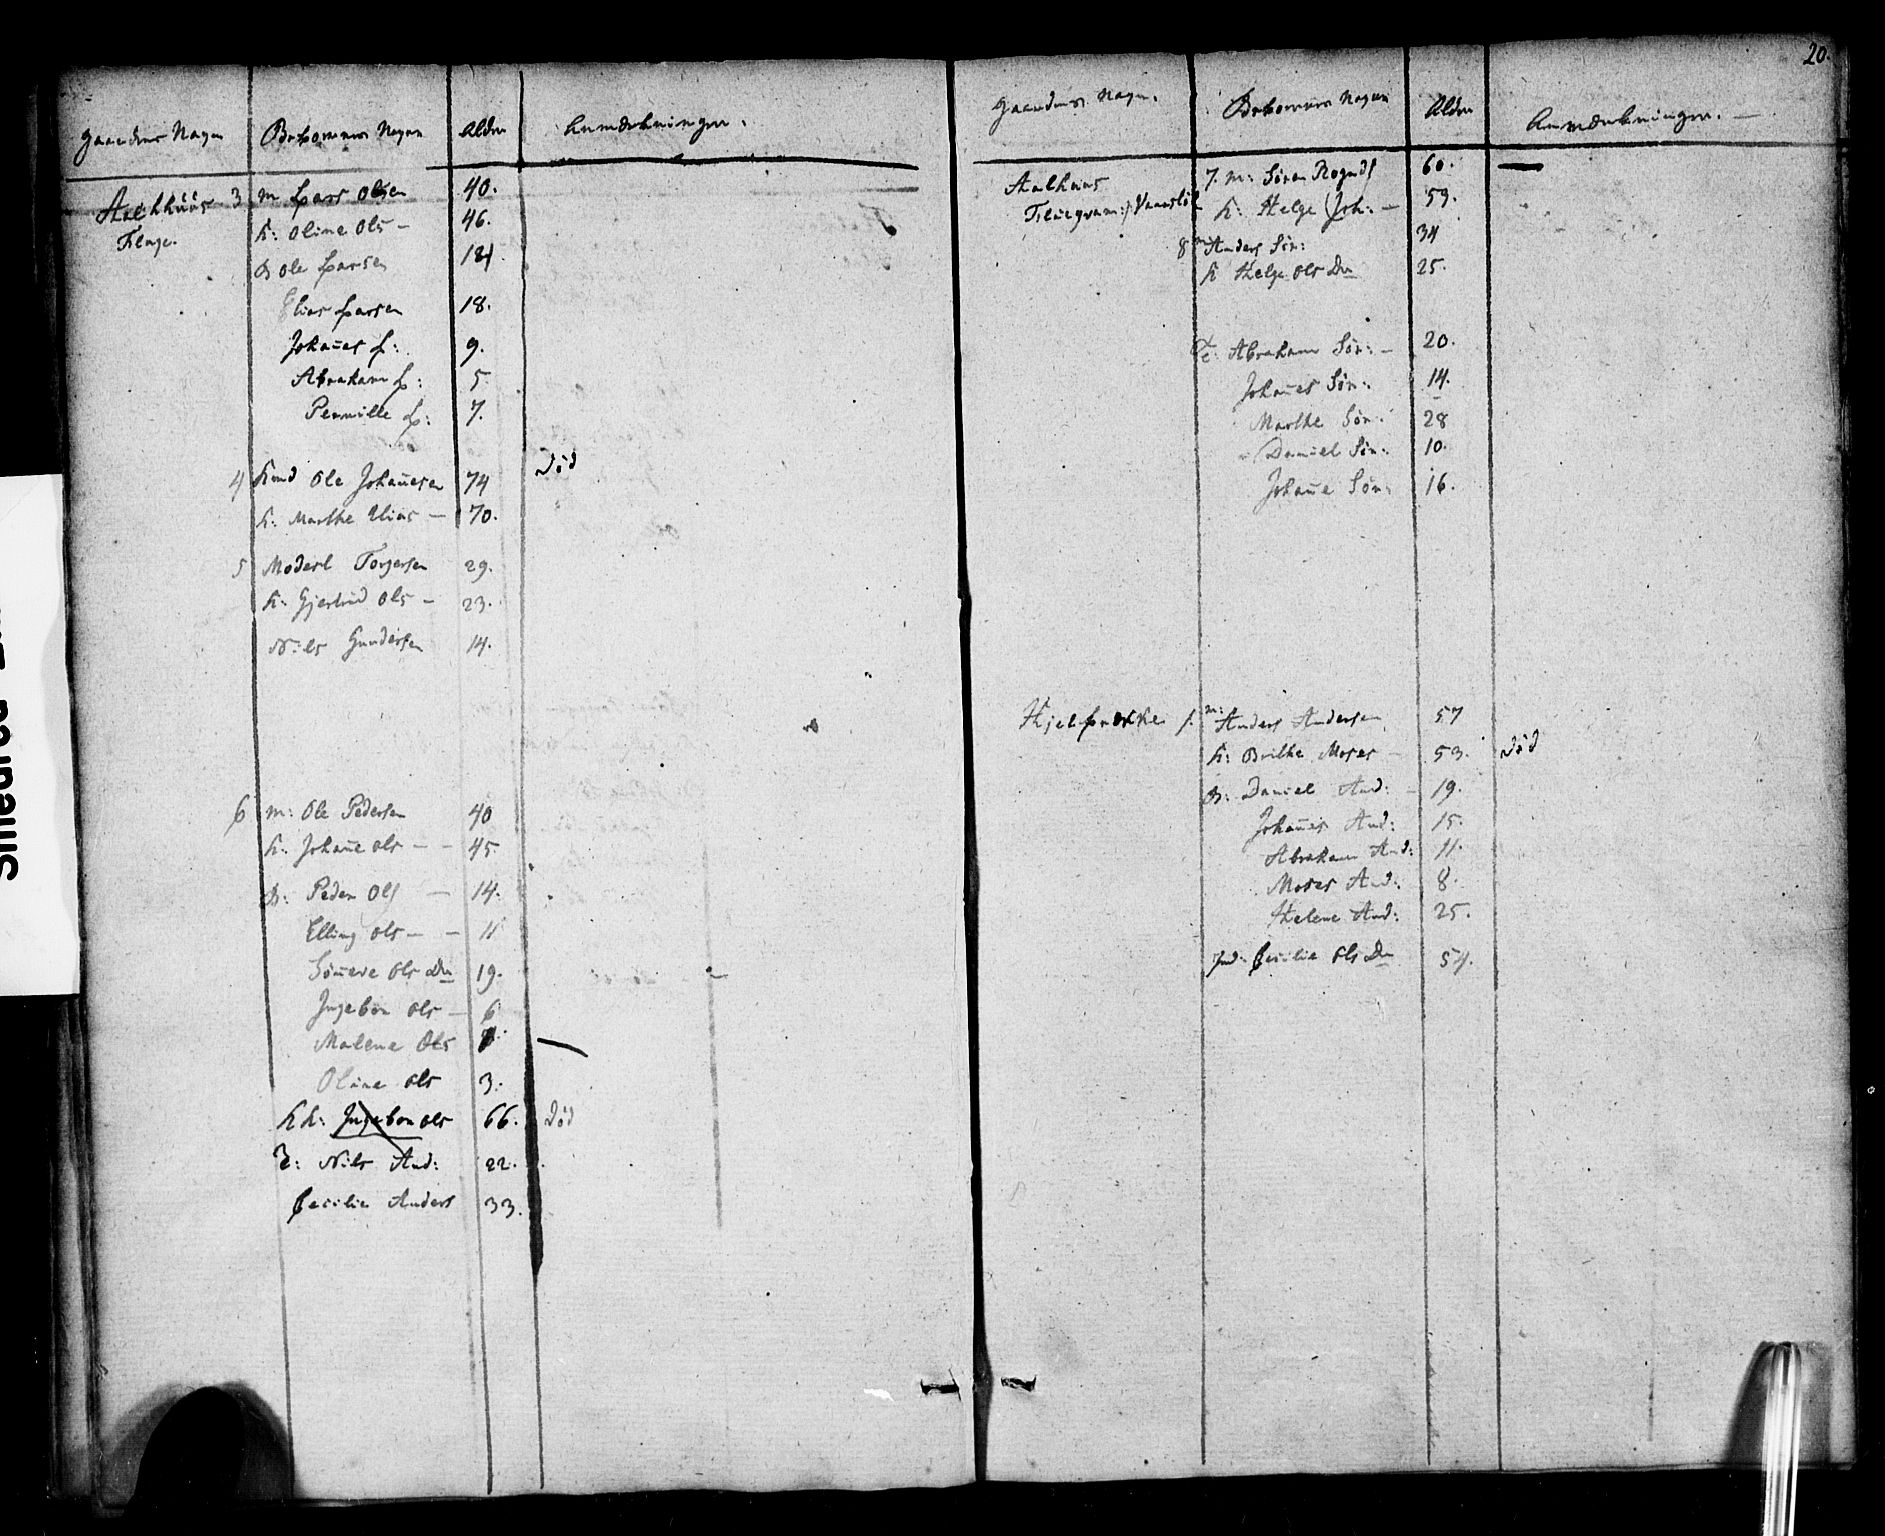 Gaardens Nagn Beboernes Nagn Alder Anmærkninger.
Aalhhuus 3 m Lars Olsen 40.
Filuge. K: Oline Ols – 46.
B Ole Larsen 18
Elias Larsen 18.
Johañes L: 9.
Abraham L: 5
Pernille L: 7.
4 Knud Ole Johañesen 74 Død
K: Marthe Elias – 70.
5 Moderl Torgersen 29.
K: Gjertrud Ols – 23.
Nils Gundersen 14.
6 m: Ole Pedersen 40
K: Johañe Ols – – 45
B: Peder Ols – 14.
Elling Ols – – 11
Søñeve Ols Dn 19.
Ingebor Ols – 6
Malene Ols
Oline Ols 3.
KK: Ingebor Ols 66. Død
T: Nils And: 22.
Cecilia Anders 33.
20.
Gaardens Nagn. Beboernes Nagn Alder Anmærkninger. –
Aalhuus 7. m: Søren Rognds 60. –
K: Helge Joh: – 59.
8 m Anders Sør: 34
K Helge Ols Dn 25.
T: Abraham Sør: – 20.
Johañes Sør: 14.
Marthe Sør: 28
Daniel Sør: 10.
Johañe Sør: 16.
1. m: Anders Andersen 57
K: Brithe Moses – 53. Død
B: Daniel And: – 19.
Johañes And: 15.
Abraham And: 11.
Moses And: 8.
Helene And: 25.
Ind: Cecilie Ols Dn 54.